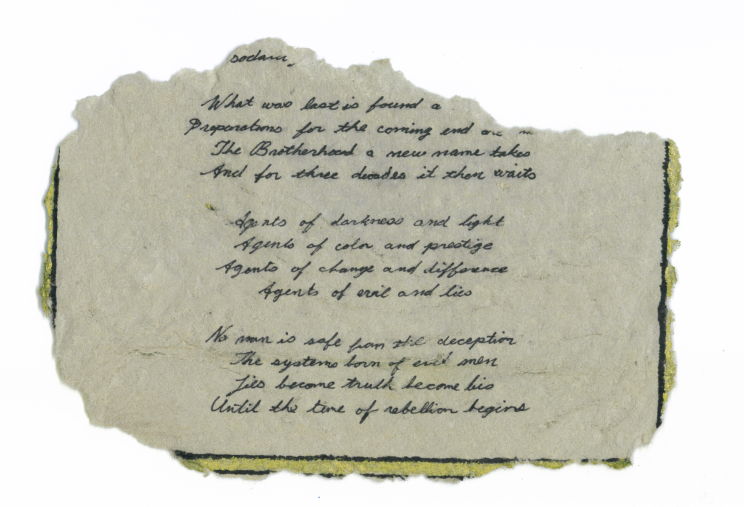 What was lost is found a
Preparations for the coming end are
The Brotherhood a new name takes
And for three decades it then waits
Agents of darkness and light
Agents of color and prestige
Agents of change and difference
Agents of evil and lies
No man is safe from the deception
The systems born of evil men
Lies become truth become lies
Until the time of rebellion begins